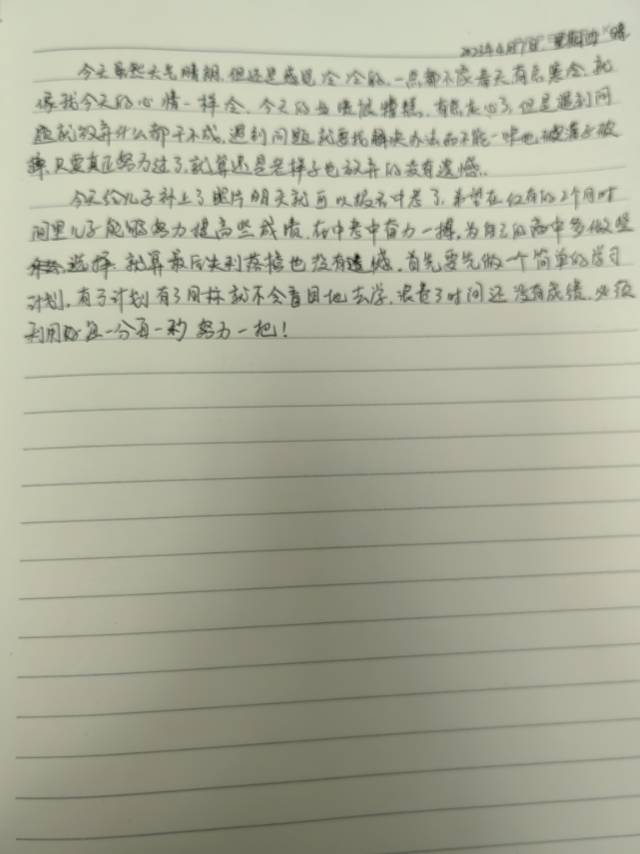 2023年4月7日 星期五 晴
今天虽然天气晴朗,但还是感觉冷冷的,一点都不像春天有点寒冷,就
像我今天的心情一样冷,今天的业绩很糟糕,有点灰心了,但是遇到问
题就放弃什么都干不成,遇到问题就要找解决办法而不能一味地破罐子破
摔,只要真正努力过了,就算还是老样子也放弃的没有遗憾。
今天给儿子补上了照片明天就可以报名中考了,希望在仅有的2个月时
间里儿子能够努力提高些成绩,在中考中奋力一搏,为自己的高中多做些
选择,就算最后失利落榜也没有遗憾,首先要先做一个简单的学习
计划,有了计划有了目标就不会盲目地去学,浪费了时间还没有成绩,必须
利用好每一分每一秒努力一把!